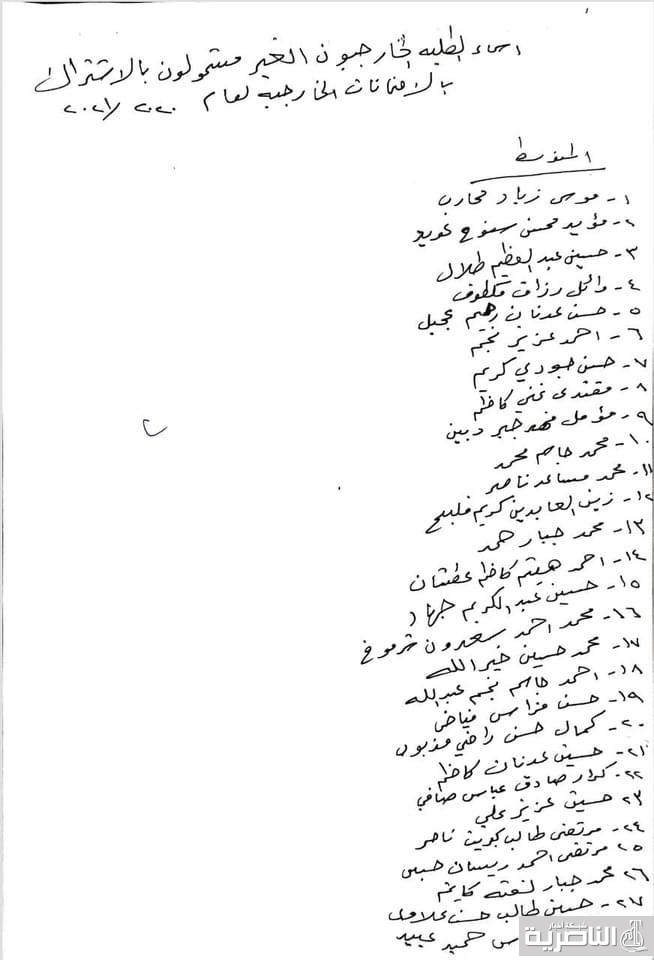 اسماء الطلبه الخارجيون الغير مشمولون بالاشتراك
بالامتحانات الخارجية لعام ٢٠٢٠/٢٠٢١
المتوسط
١- موسى زياد محارب
٢- مؤيد محسن سنوح عويد
٣- حسين عبد العظيم طلال
٤- وائل رزاق مكطوف
٥- حسن عدنان رهيم عجيل
٦- احمد عزيز نجم
٧- حسن عبودي كريم
٨- مقتدى غني كاظم
٩- مؤمل فهد جبر دبين
١٠- محمد جاسم محمد
١١- محمد مساعد ناصر
١٢- زين العابدين كريم فليح
١٣- محمد جبار حمد
١٤- احمد هيثم كاظم عطشان
١٥- حسين عبد الكريم جهاد
١٦- محمد احمد سعدون شرموخ
١٧- محمد حسين خير الله
١٨- احمد جاسم نجم عبدالله
١٩- حسن فراس فياض
٢٠- كمال حسن راضي مذبوب
٢١- حسين عدنان كاظم
٢٢- كرار صادق عباس صافي
٢٣- حسين عزيز علي
٢٤- مرتضى طالب كويت ناصر
٢٥- مرتضى احمد ريسان حبيب
٢٦- محمد جبار لفته كايم
٢٧- حسين طالب حسن علاوي
حميد عبيد
شبكة اخبار
الناصرية